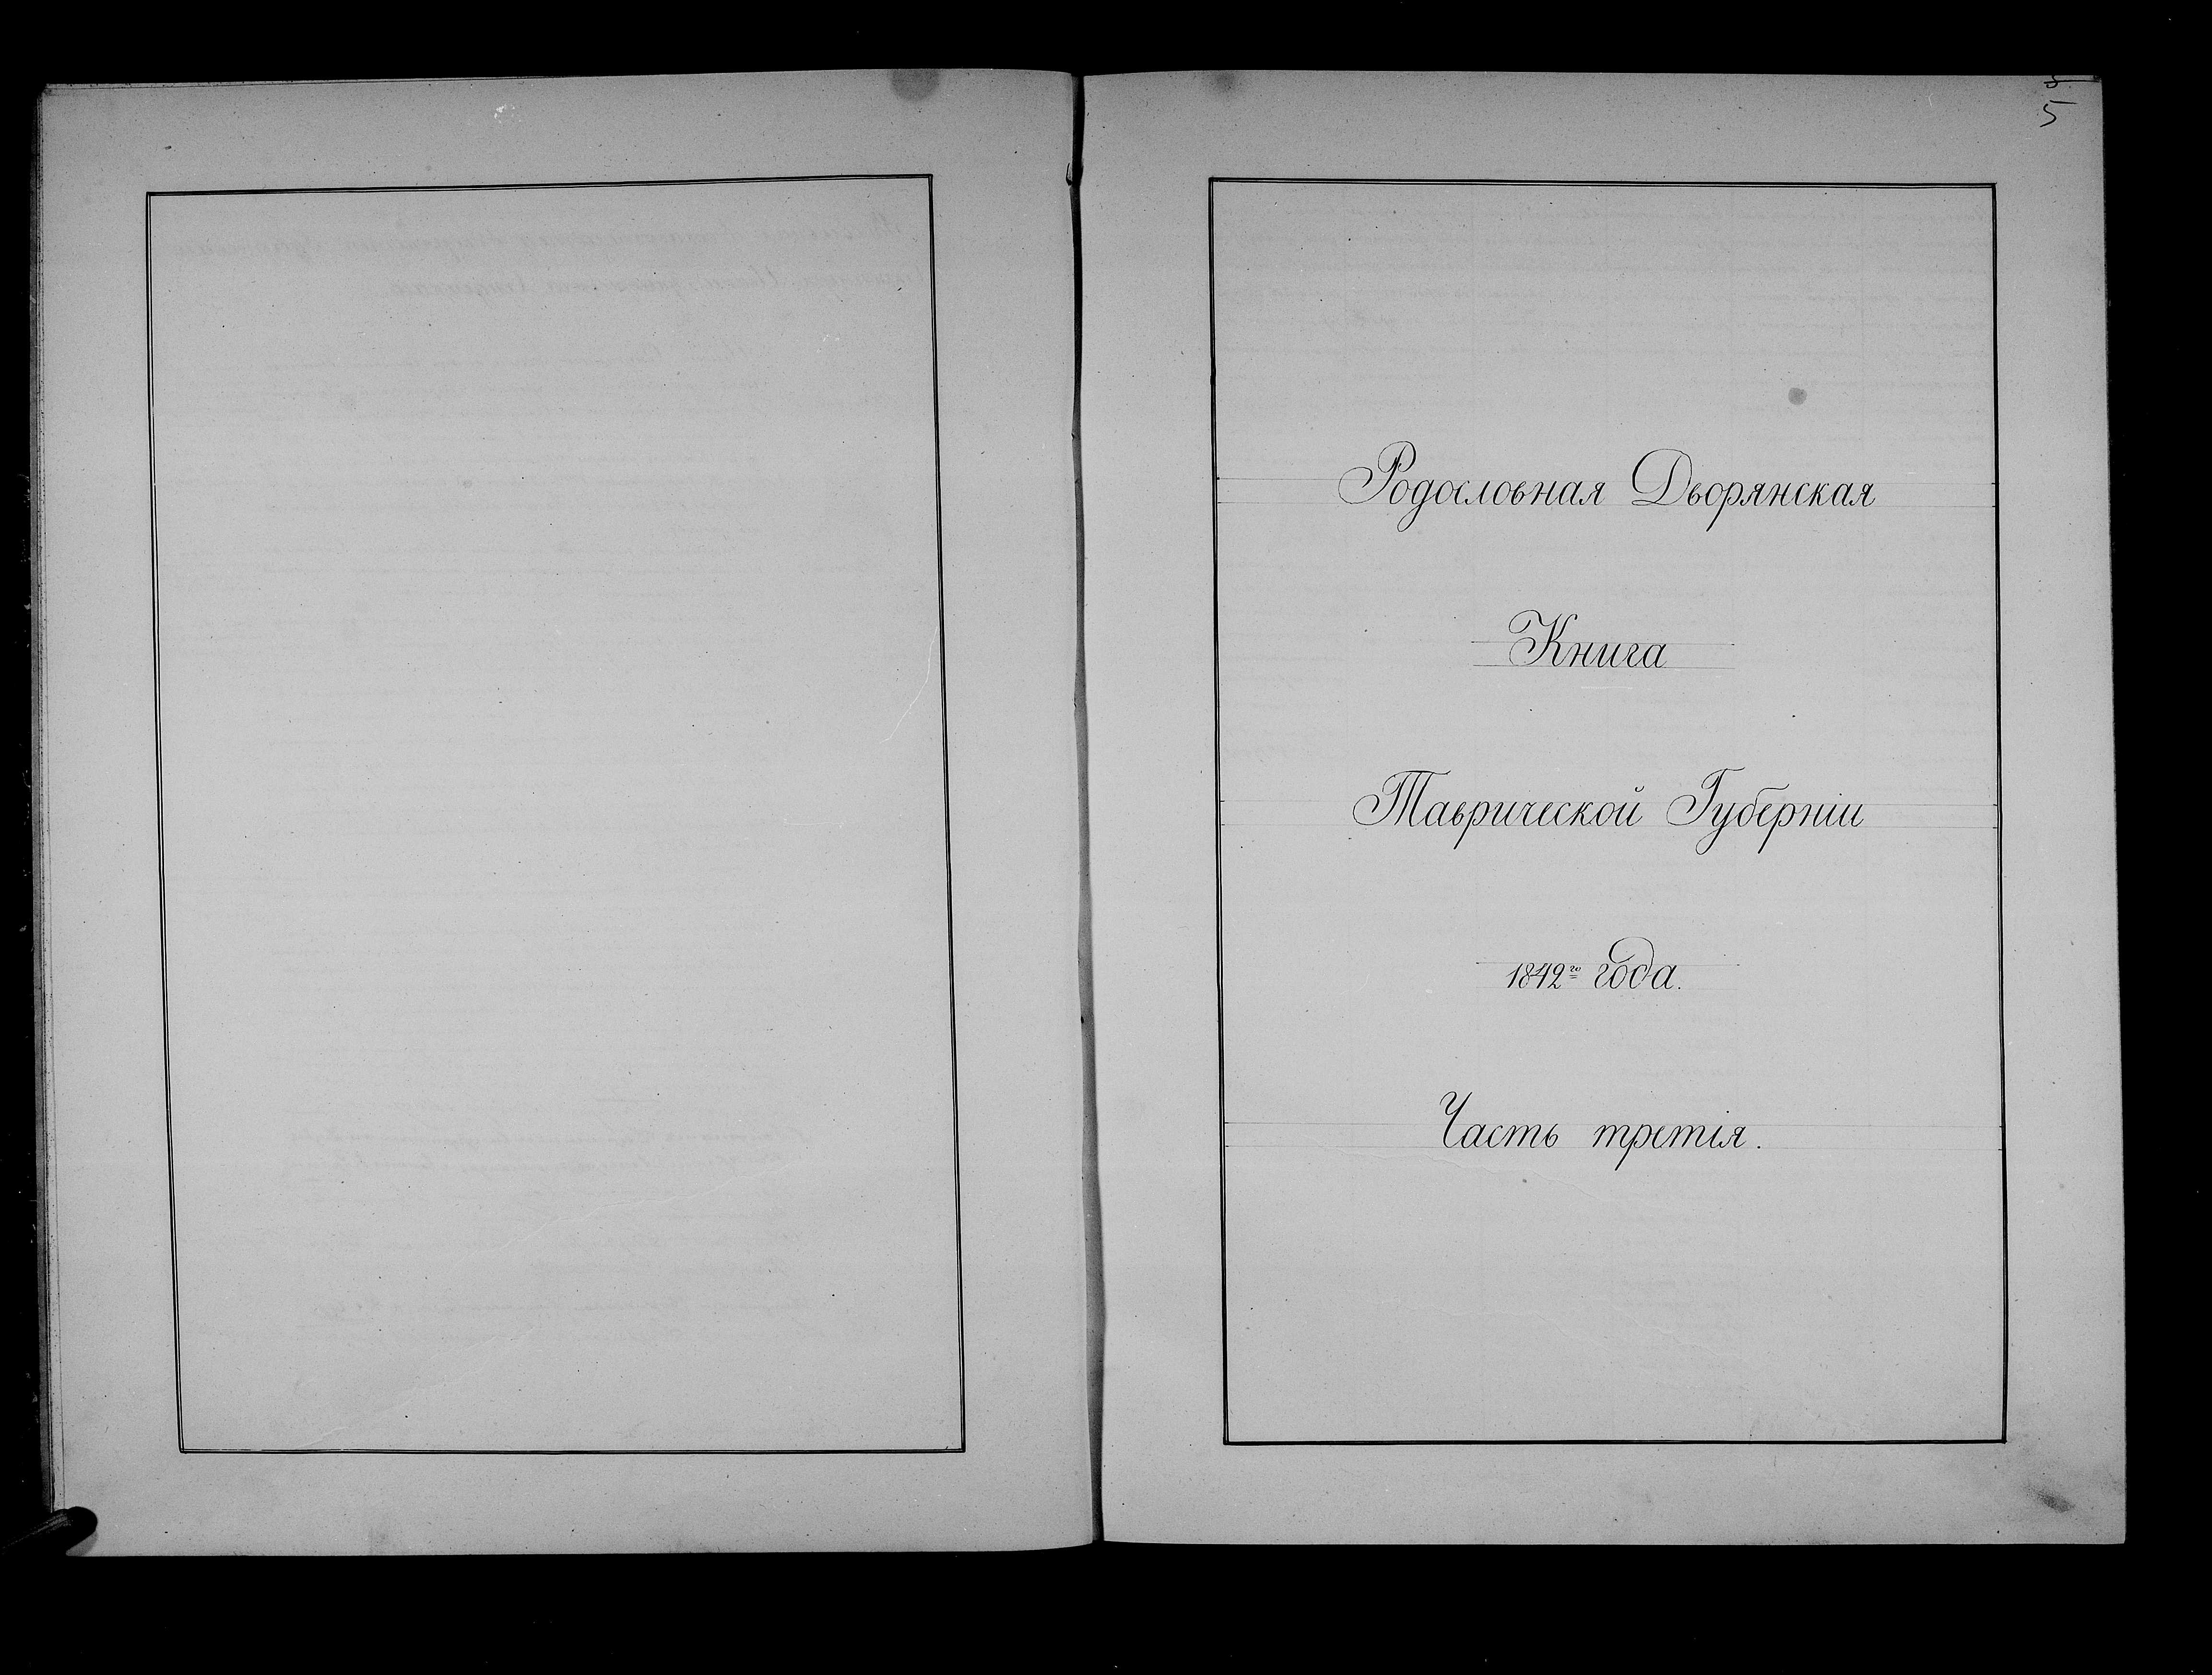 5
Родословная Дворянская
Книга
Таврической Губерніи
1842го года.
Часть третія.